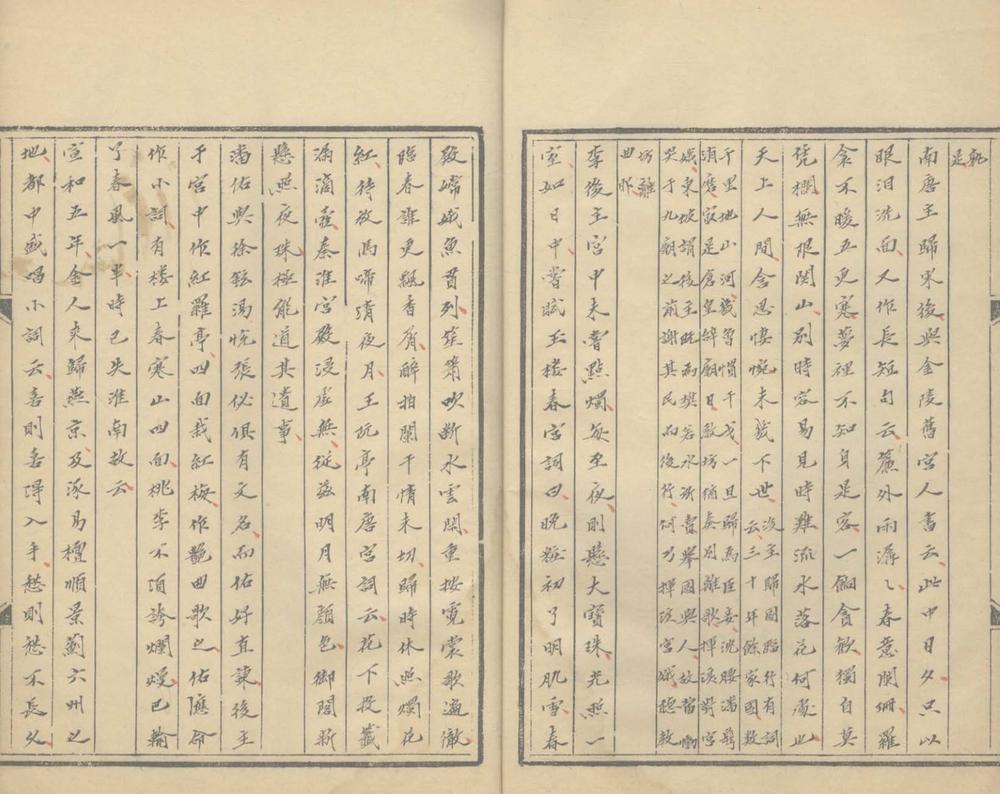 孰
是
南唐主歸宋後與金陵舊宮人書云此中日夕只以
眼泪洗面又作長短句云簾外雨潺〻春意闌珊羅
衾不暖五更寒夢裡不知身是客一餉貪歡獨自莫
凭欄無限関山别時容易見時難流水落花何處也
天上人間含思悽惋未幾下世
後主歸國臨行有詞
云三十年餘家國數
千里地山河幾曾慣干戈一旦歸爲臣妾沈腰潘鬢
消磨最是倉皇辭廟日教坊猶奏别離歌揮淚對宮
娥東坡謂後主既爲樊若水所賣舉國與人故當慟
哭于九廟之前謝其民而後行何乃揮淚宮娥聽教
坊離
曲耶
李後主宮中未嘗點燭每至夜則懸大寶珠光照一
室如日中嘗賦玉樓春宮詞曰晚粧初了明肌雪春
殿嬪娥魚貫列笙簫吹斷水雲閒重按霓裳歌遍徹
臨春誰更飄香屑醉拍闌干情未切歸時休照燭花
紅待放馬啼清夜月王阮亭南唐宮詞云花下投籤
漏滴壺秦淮宮殿浸虛無從兹明月無顏色御閣新
懸照夜珠極能道其遺事
潘佑與徐鉉湯悅張佖俱有文名而佑好直諫後主
于宮中作紅羅亭四面栽紅梅作艷曲歌之佑應命
作小詞有楼上春寒山四面桃李不須誇爛熳已輸
了春風一半時已失淮南故云
宣和五年金人來歸燕京及涿易檀順景薊六州之
地都中盛唱小詞云喜則喜得入手愁則愁不長久